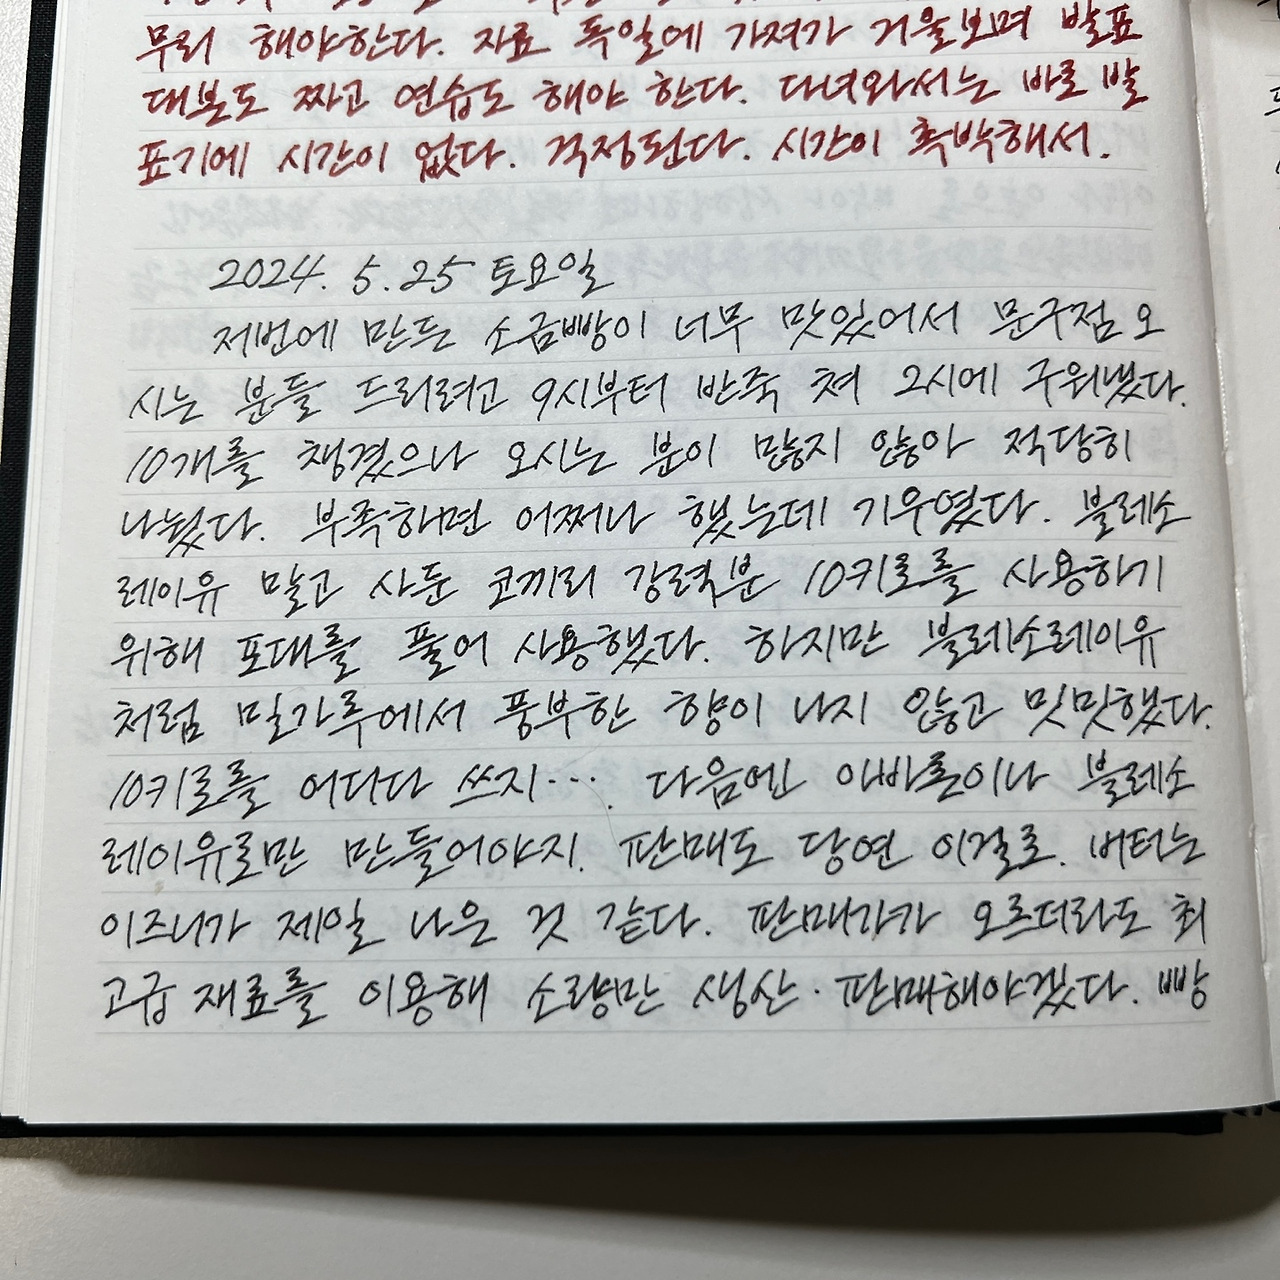 무리 해야한다. 자료 독일에 가져가 거울보며 발표
대본도 짜고 연습도 해야 한다. 다녀와서는 바로 발
표기에 시간이 없다. 걱정된다. 시간이 촉박해서.
2024. 5. 25 토요일
저번에 만든 소금빵이 너무 맛있어서 문구점 오
시는 분들 드리려고 9시부터 반죽 쳐 2시에 구워냈다.
10개를 챙겼으나 오시는 분이 많지 않아 적당히
나눴다. 부족하면 어쩌나 했는데 기우였다. 블레소
레이유 말고 사둔 코끼리 강력분 10키로를 사용하기
위해 포대를 풀어 사용했다. 하지만 블레소레이유
처럼 밀가루에서 풍부한 향이 나지 않고 밋밋했다.
10키로를 어디다 쓰지···. 다음엔 아빠론이나 블레소
레이유로만 만들어야지. 판매도 당연 이걸로. 버터는
이즈니가 제일 나은 것 같다. 판매가가 오르더라도 최
고급 재료를 이용해 소량만 생산·판매해야겠다. 빵